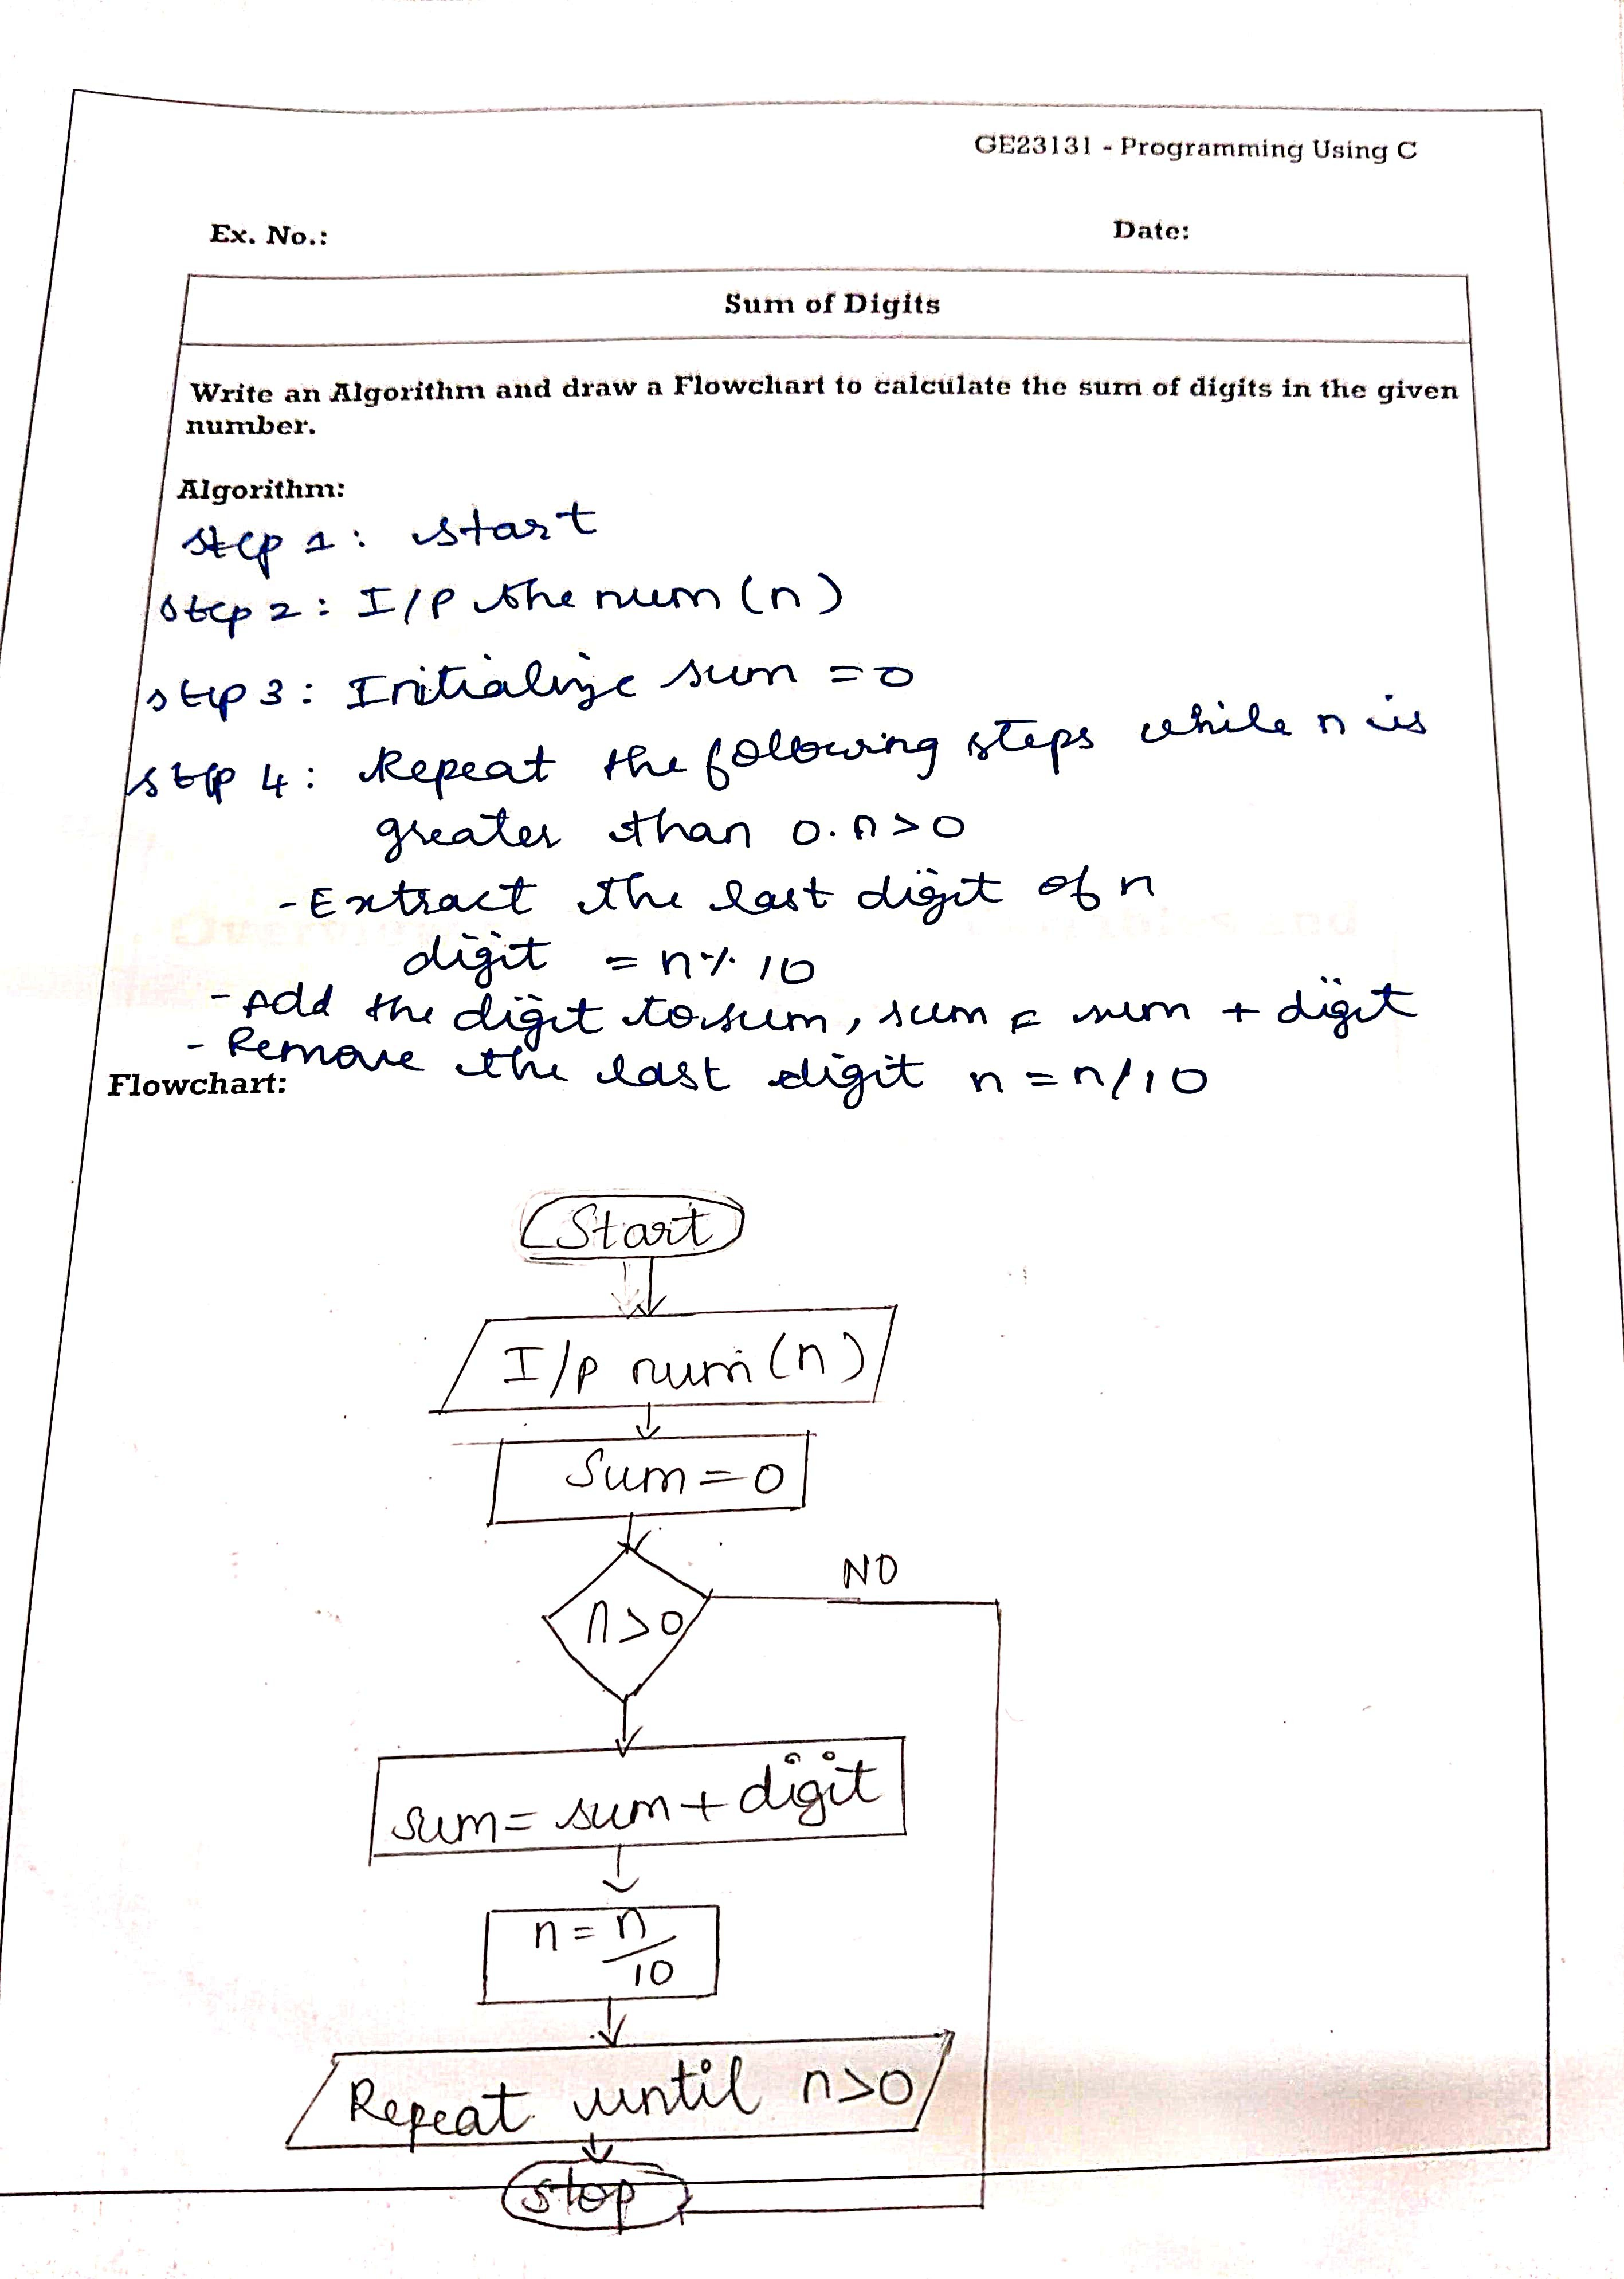 GE23131 - Programming Using C
Ex. No.: Date:
Sum of Digits
Write an Algorithm and draw a Flowchart to calculate the sum of digits in the given
number.
Algorithm:
step 1: start
step 2: I/P the num (n)
step 3: Initialize sum = 0
step 4: Repeat the following steps while n is
greater than 0. n>0
- Extract the last digit of n
digit = n % 10
- Add the digit to sum, sum = sum + digit
- Remove the last digit n = n/10
Flowchart:
Start
I/p num (n)
Sum = 0
NO
n>0
sum = sum + digit
n = n/10
Repeat until n>0
stop